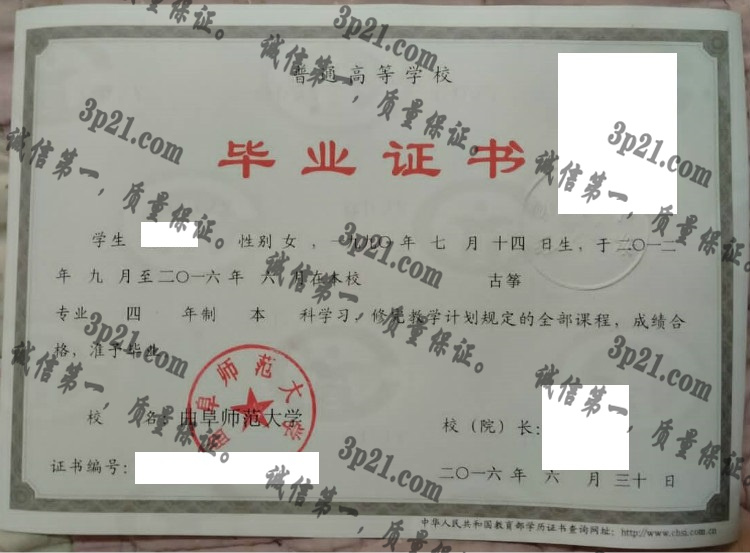 普通高等学校
毕业证书
学生 性别 女 ，一九九〇 年 七 月 十四 日生，于二〇一二
年 九 月至二〇一六 年 六 月在本校 古筝
专业 四 年制 本 科学习，修完教学计划规定的全部课程，成绩合
格，准予毕业。
曲阜师范大学
校 名：曲阜师范大学
校（院）长：
证书编号：
二〇一六 年 六 月 三十 日
中华人民共和国教育部学历证书查询网址：http://www.chsi.com.cn
3p21.com
诚信第一，质量保证。
3p21.com
诚信第一，质量保证。
3p21.com
诚信第一，质量保证。
3p21.com
诚信第一，质量保证。
3p21.com
诚信第一，质量保证。
3p21.com
诚信第一，质量保证。
3p21.com
诚信第一，质量保证。